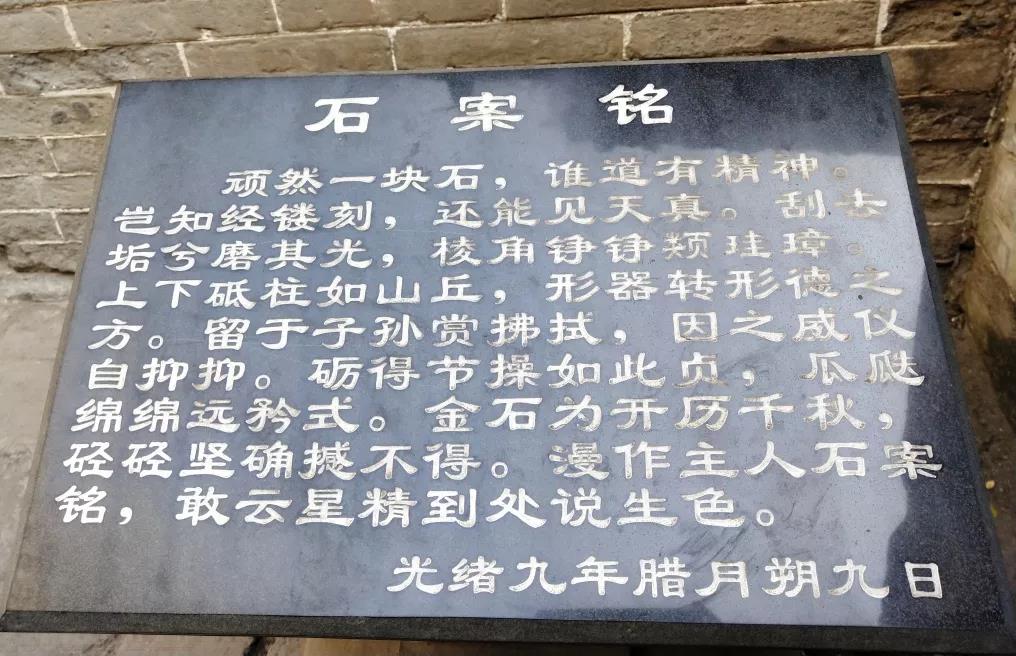 石案铭
顽然一块石，谁道有精神。
岂知经镂刻，还能见天真。刮去
垢兮磨其光，棱角铮铮颣珪璋。
上下砥柱如山丘，形器转形德之
方。留于子孙赏拂拭，因之威仪
自抑抑。砺得节操如此贞，瓜瓞
绵绵远矜式。金石为开历千秋，
硁硁坚确撼不得。漫作主人石案
铭，敢云星精到处说生色。
光绪九年腊月朔九日